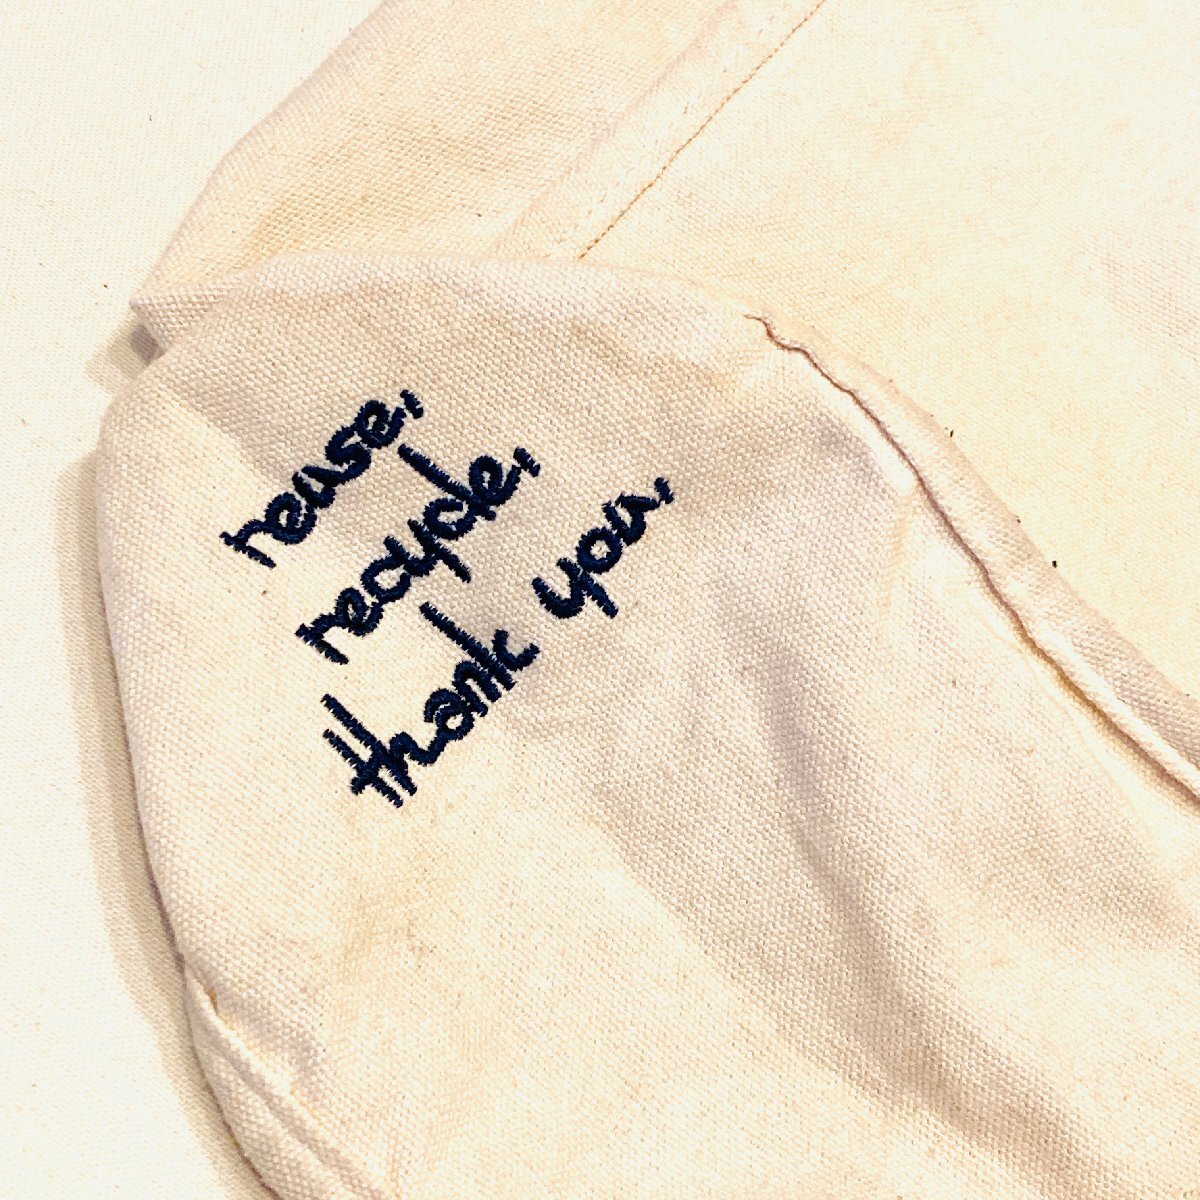 rease,
recycle,
thank you,